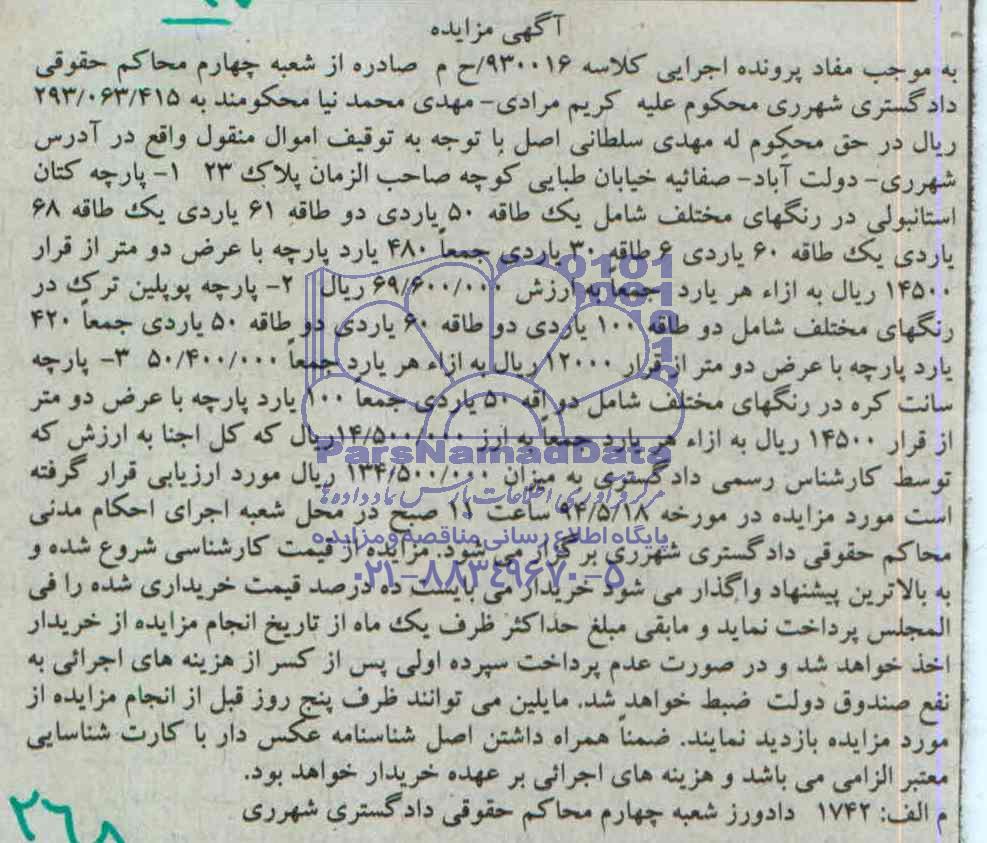 آگهی مزایده
به موجب مفاد پرونده اجرایی کلاسه ۹۳۰۰۱۶/ح م صادره از شعبه چهارم محاکم حقوقی
دادگستری شهرری محکوم علیه کریم مرادی- مهدی محمد نیا محکومند به ۲۹۳/۰۶۳/۴۱۵
ریال در حق محکوم له مهدی سلطانی اصل با توجه به توقیف اموال منقول واقع در آدرس
شهرری- دولت آباد- صفائیه خیابان طبایی کوچه صاحب الزمان پلاک ۲۳ ۱- پارچه کتان
استانبولی در رنگهای مختلف شامل یک طاقه ۵۰ یاردی دو طاقه ۶۱ یاردی یک طاقه ۶۸
یاردی یک طاقه ۶۰ یاردی ۶ طاقه ۳۰ یاردی جمعاً ۴۸۰ یارد پارچه با عرض دو متر از قرار
۱۴۵۰۰ ریال به ازاء هر یارد جمعاً به ارزش ۶۹/۶۰۰/۰۰۰ ریال ۲- پارچه پوپلین ترک در
رنگهای مختلف شامل دو طاقه ۱۰۰ یاردی دو طاقه ۶۰ یاردی دو طاقه ۵۰ یاردی جمعاً ۴۲۰
یارد پارچه با عرض دو متر از قرار ۱۲۰۰۰ ریال به ازاء هر یارد جمعاً ۵۰/۴۰۰/۰۰۰ ۳- پارچه
سانت کره در رنگهای مختلف شامل دو اقه ۵۰ یاردی جمعاً ۱۰۰ یارد پارچه با عرض دو متر
از قرار ۱۴۵۰۰ ریال به ازاء هر یارد جمعاً به ارز ۱۴/۵۰۰/۰۰۰ریال که کل اجنا به ارزش که
توسط کارشناس رسمی دادگستری به میزان ۱۳۴/۵۰۰/۰۰۰ ریال مورد ارزیابی قرار گرفته
است مورد مزایده در مورخه ۹۴/۵/۱۸ ساعت ۱۱ صبح در محل شعبه اجرای احکام مدنی
محاکم حقوقی دادگستری شهرری برگزار می شود. مزایده از قیمت کارشناسی شروع شده و
به بالاترین پیشنهاد واگذار می شود خریدار می بایست ده درصد قیمت خریداری شده را فی
المجلس پرداخت نماید و مابقی مبلغ حداکثر ظرف یک ماه از تاریخ انجام مزایده از خریدار
اخذ خواهد شد و در صورت عدم پرداخت سپرده اولی پس از کسر از هزینه های اجرائی به
نفع صندوق دولت ضبط خواهد شد. مایلین می توانند ظرف پنج روز قبل از انجام مزایده از
مورد مزایده بازدید نمایند. ضمناً همراه داشتن اصل شناسنامه عکس دار با کارت شناسایی
معتبر الزامی می باشد و هزینه های اجرائی بر عهده خریدار خواهد بود.
م الف: ۱۷۴۲ دادورز شعبه چهارم محاکم حقوقی دادگستری شهرری
ParsNamadData
پایگاه اطلاع رسانی مناقصه و مزایده
۰۲۱-۸۸۳۴۹۶۷۰-۵
۲۶۸